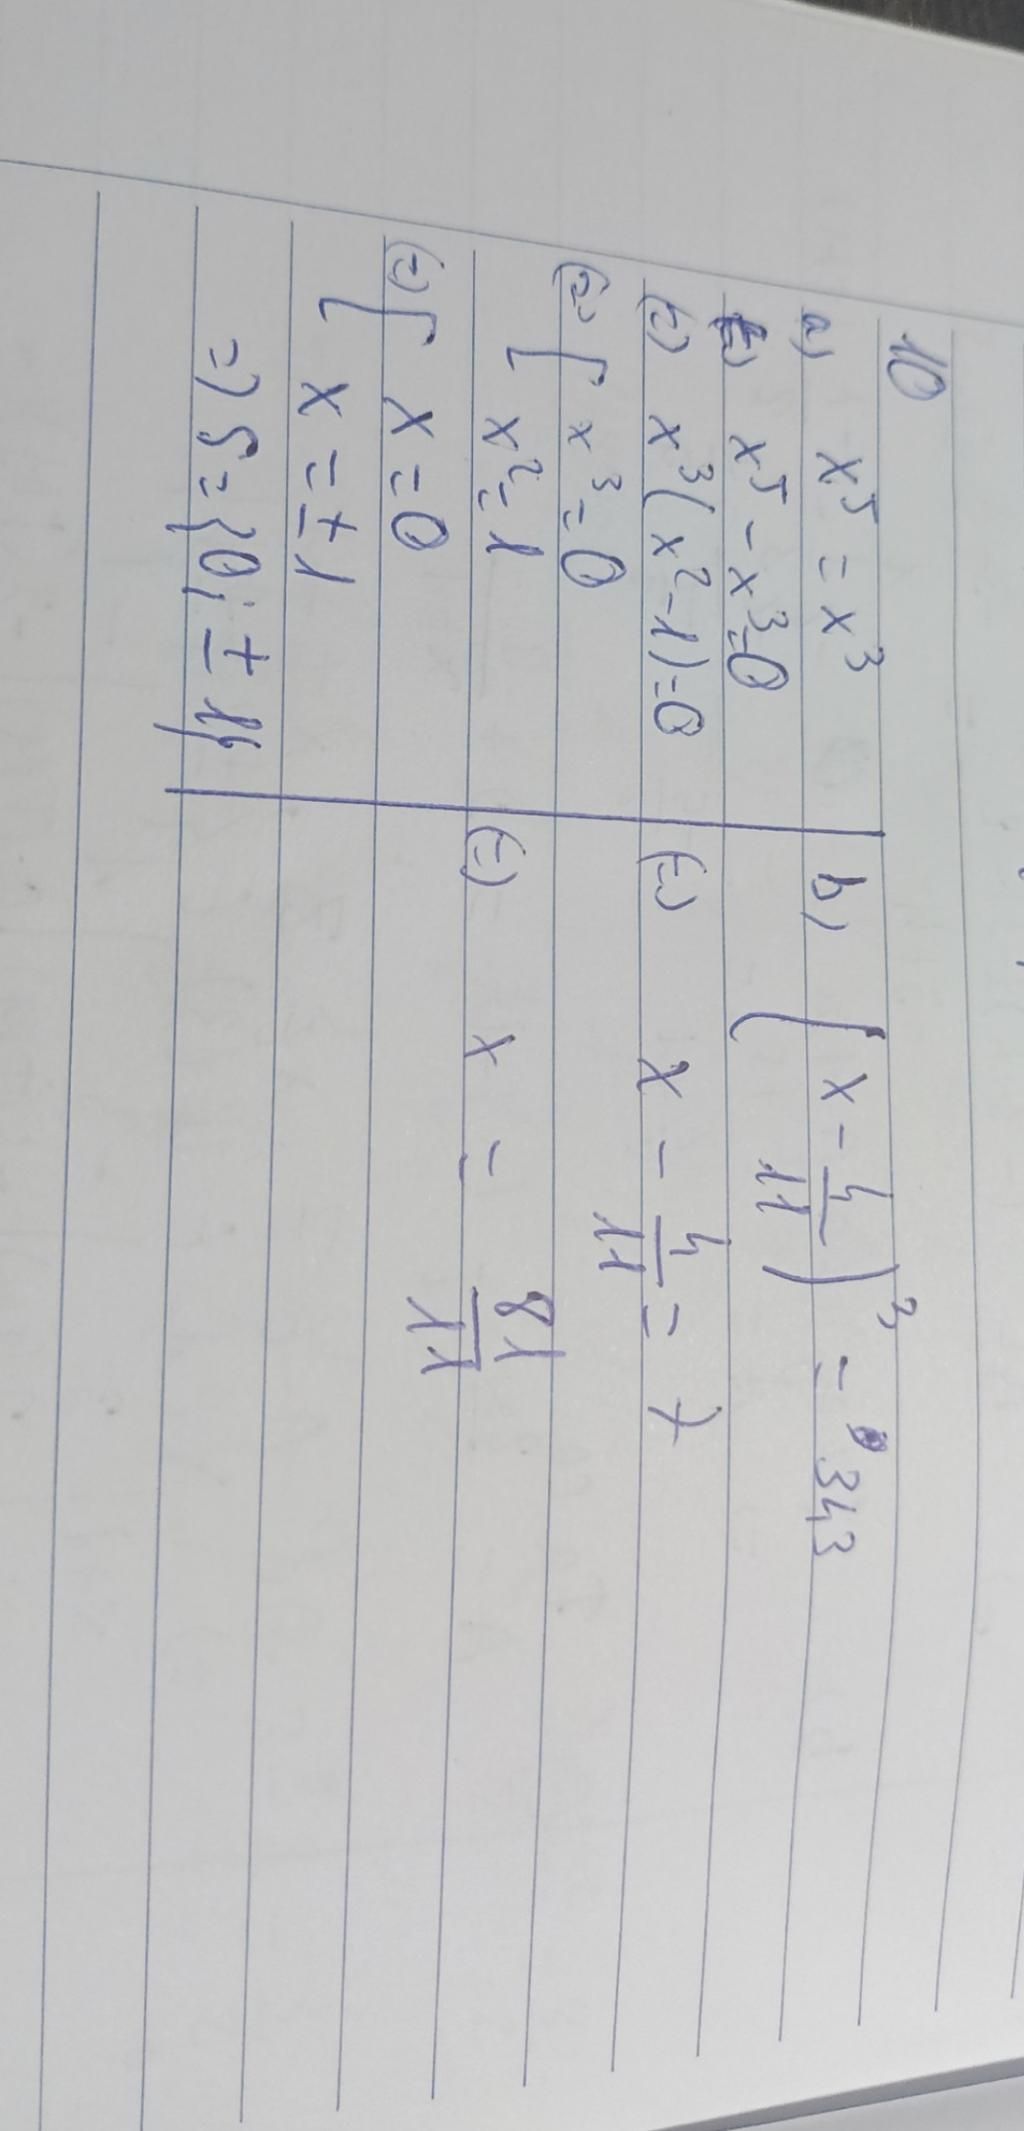 10
a) x⁵ = x³
(=) x⁵ - x³ = 0
(=) x³(x² - 1) = 0
(=) [ x³ = 0
x² = 1
(=) [ x = 0
x = ∓1
=) S = {0; ∓1}
b) (x - 4/11)³ = 343
(=) x - 4/11 = 7
(=) x = 81/11